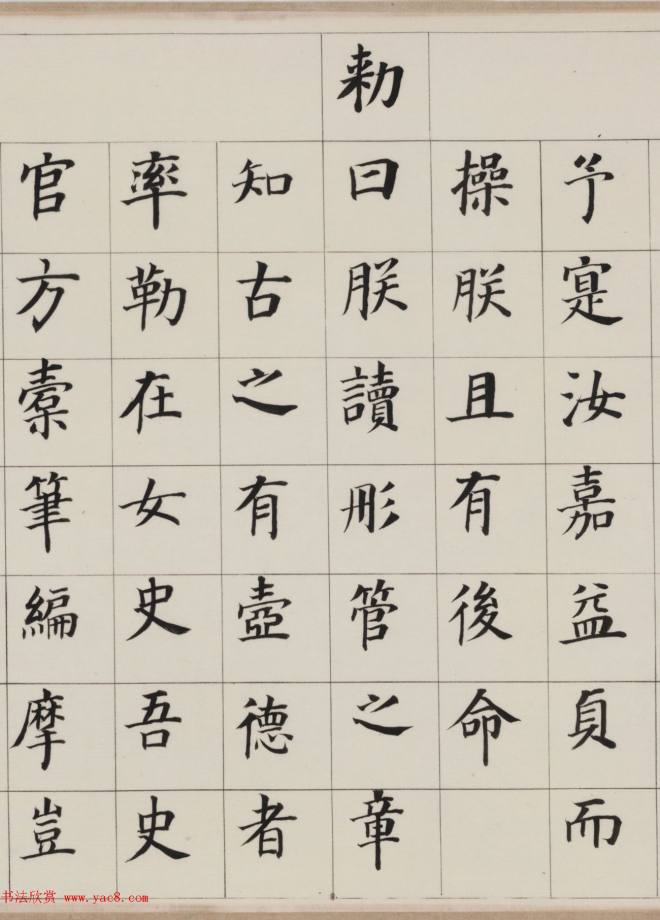 予寔汝嘉益貞而
操朕且有後命
勅曰朕讀彤管之章
知古之有壼德者
率勒在女史吾史
官方橐筆編摩豈
书法欣赏 www.yac8.com